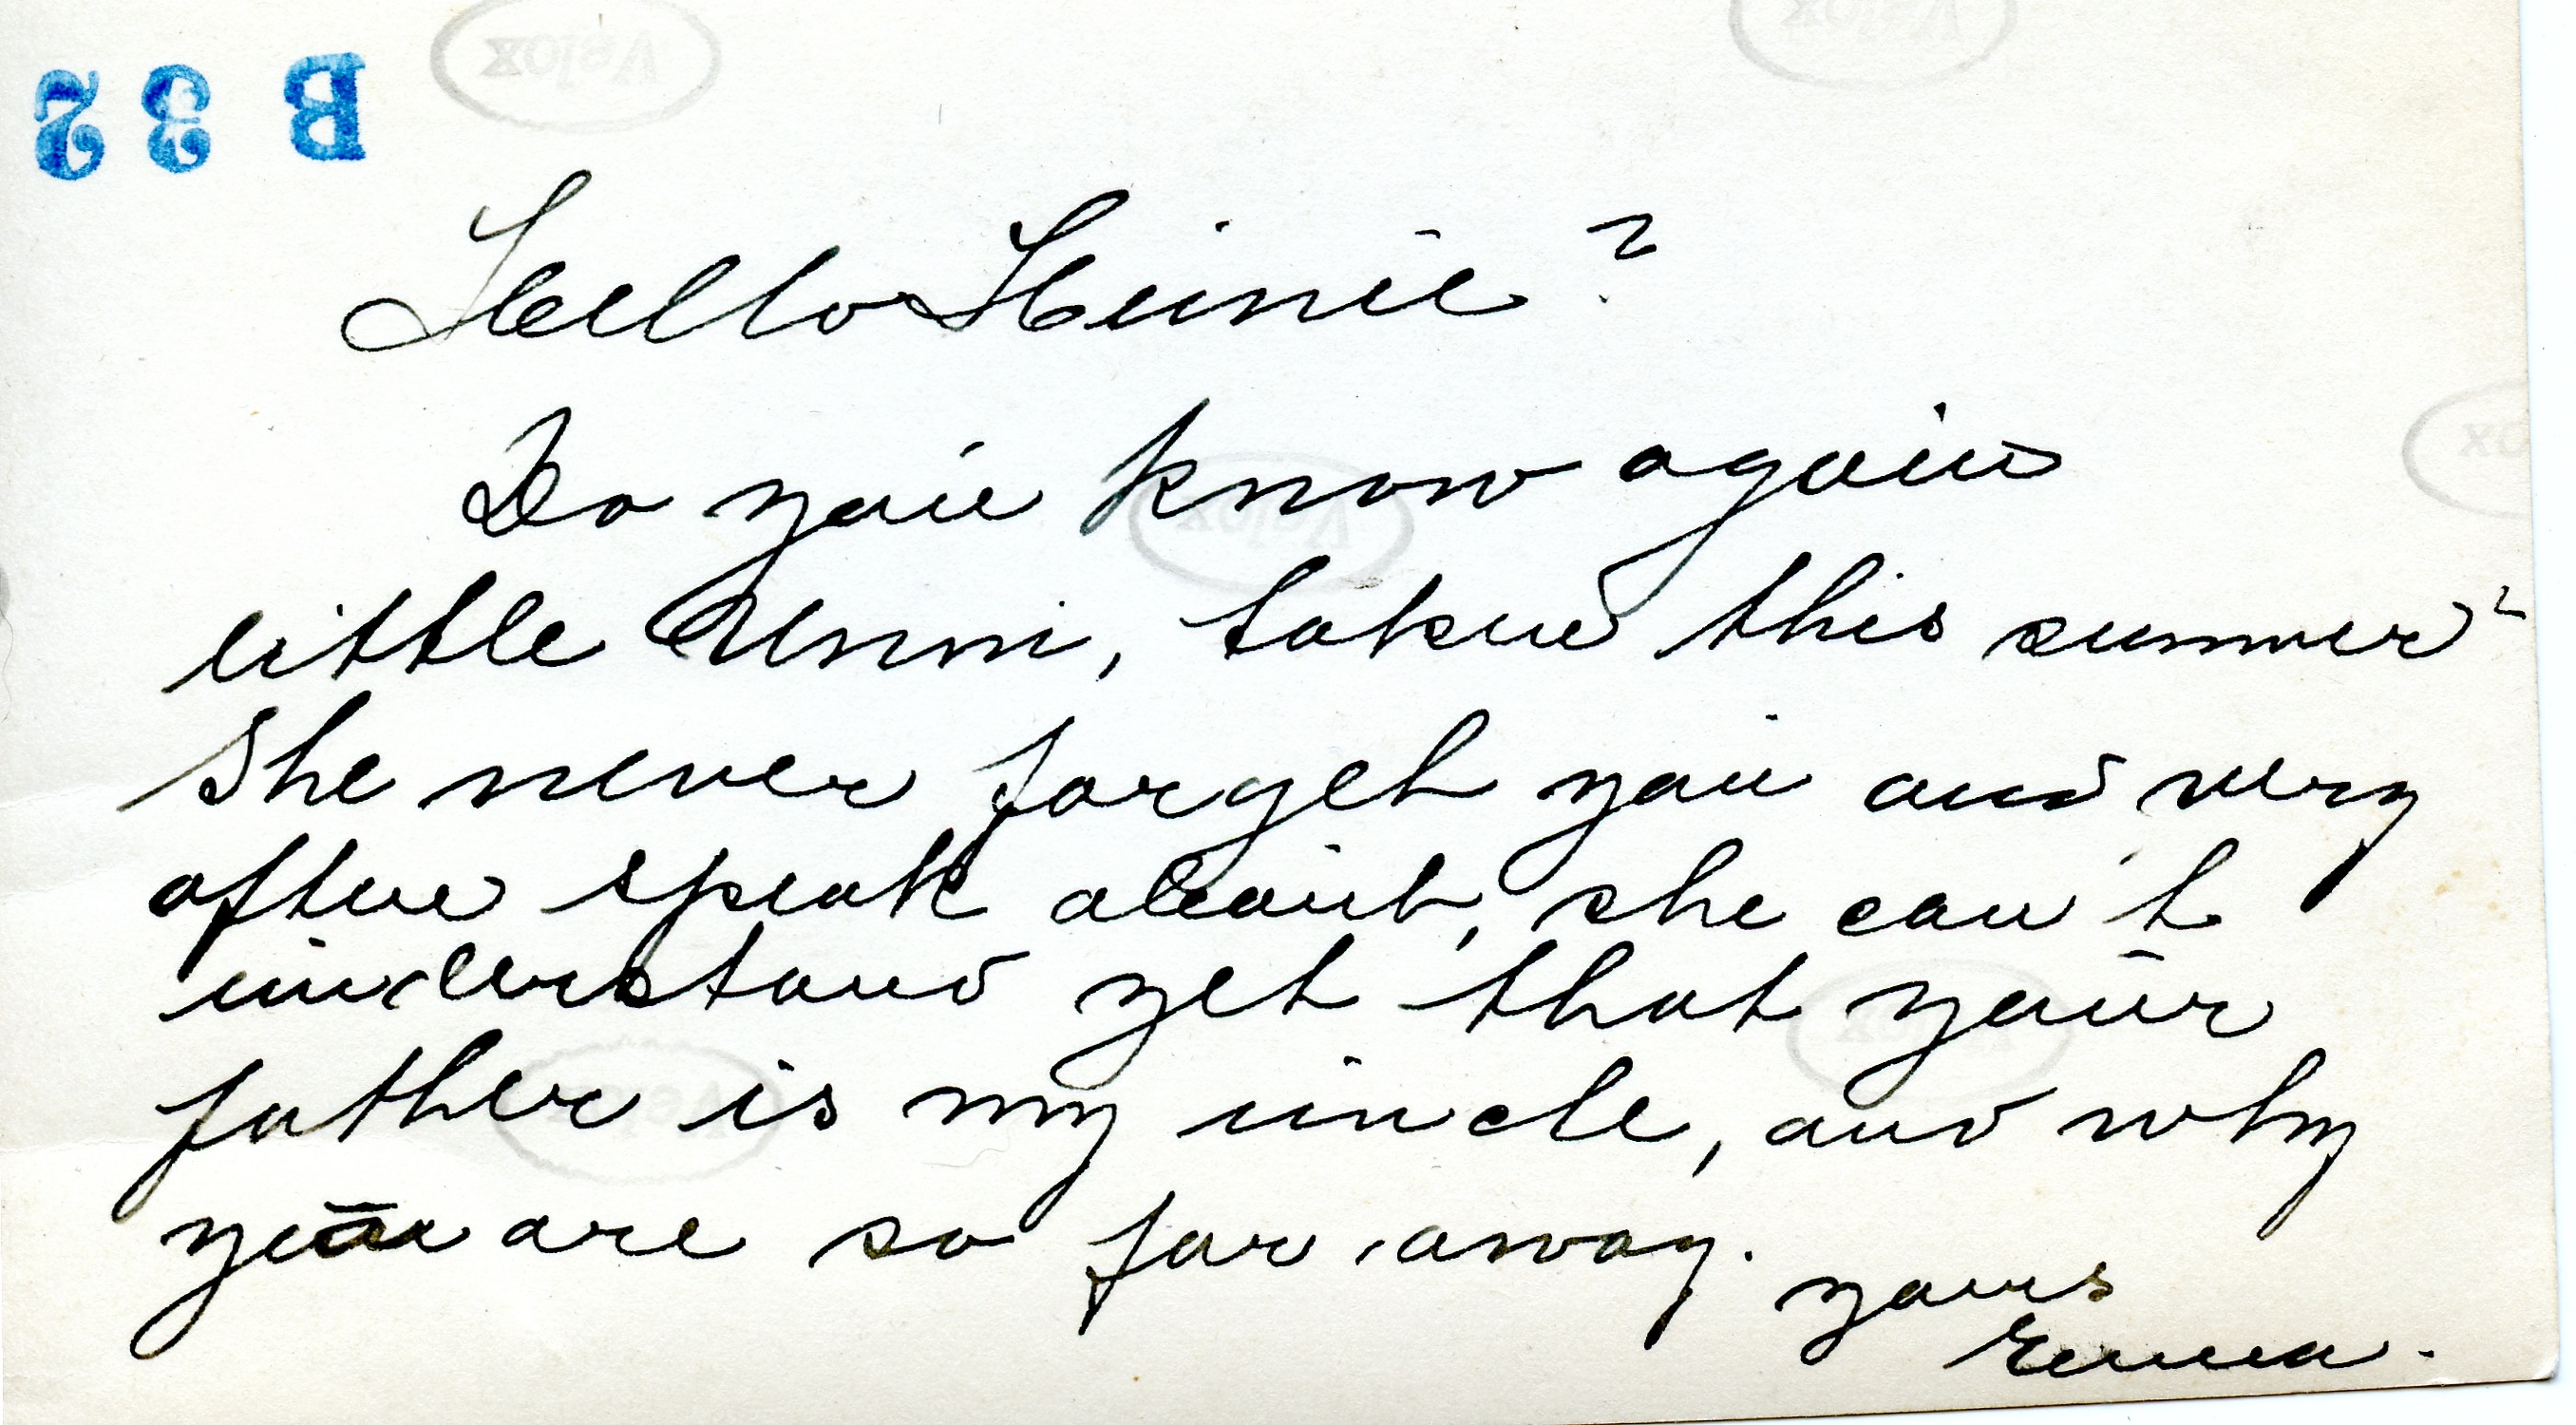 B 32
Velox
Velox
Hello Heinie?
Do you know again
Velox
little Unni, taken this summer?
She never forget you and very
often speak about, she can't
understand yet that your
father is my uncle, and why
Velox
you are so far away.
yours
Emma.